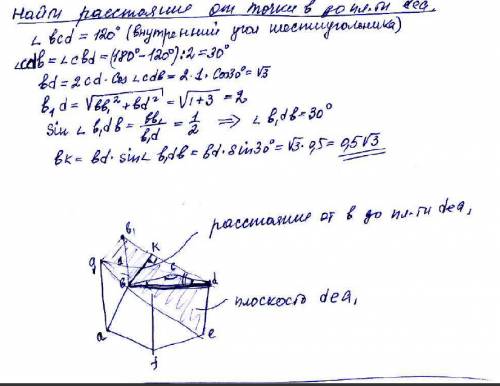 Найти расстояние от точки в до пл-ти dea₁
∠ bcd = 120° (внутренний угол шестиугольника)
∠cdb = ∠cbd = (180° - 120°) : 2 = 30°
bd = 2cd · Cos ∠cdb = 2 · 1 · Cos30° = √3
b₁d = √bb₁² + bd² = √1 + 3 = 2
Sin ∠ b₁db = bb₁/b₁d = 1/2 ⇒ ∠ b₁db = 30°
вк = bd · sin∠ b₁db = bd · Sin30° = √3 · 0,5 = 0,5√3
расстояние от в до пл-ти dea₁
в₁
K
g
1
c
d
в
плоскость dea₁
a
e
f